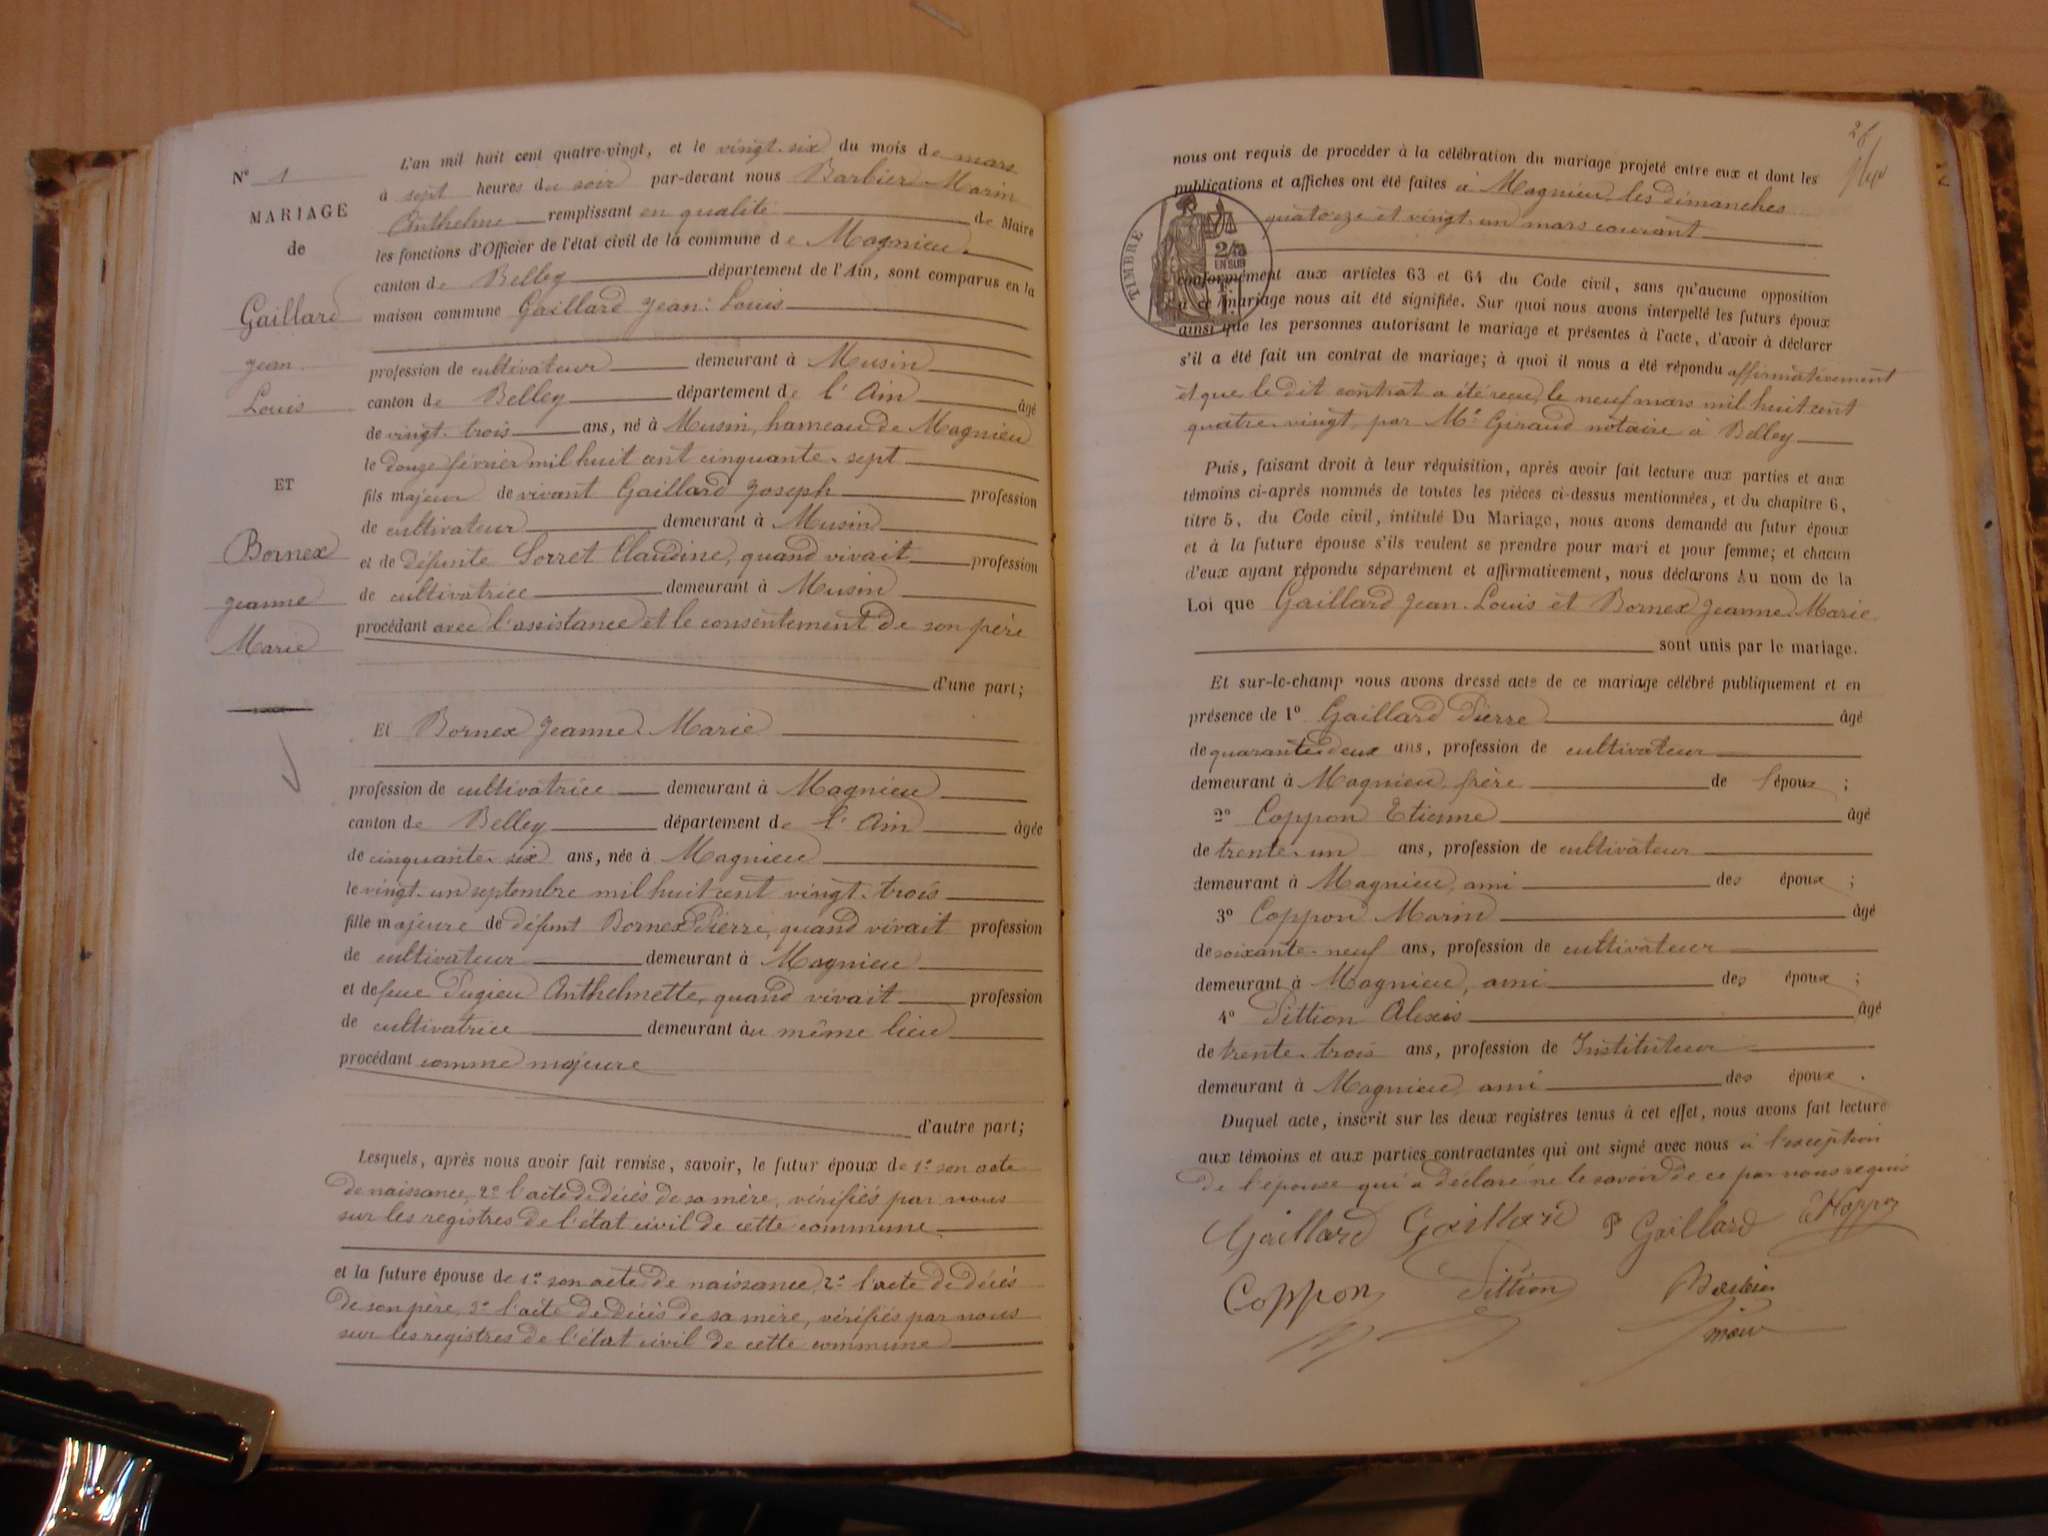 N° 1
MARIAGE
de
Gaillard
Jean
Louis
ET
Bornex
Jeanne
Marie
L'an mil huit cent quatre-vingt, et le vingt-six du mois de mars
à sept heures du soir par-devant nous Barbier Marin
Anthelme remplissant en qualité de Maire
les fonctions d'Officier de l'état civil de la commune de Magnieu
canton de Belley département de l'Ain, sont comparus en la
maison commune Gaillard Jean-Louis
profession de cultivateur demeurant à Musin
canton de Belley département de l'Ain âgé
de vingt-trois ans, né à Musin, hameau de Magnieu
le douze février mil huit cent cinquante-sept
fils majeur de vivant Gaillard Joseph profession
de cultivateur demeurant à Musin
et de défunte Sorret Claudine, quand vivait profession
de cultivatrice demeurant à Musin
procédant avec l'assistance et le consentement de son père
d'une part;
Et Bornex Jeanne-Marie
profession de cultivatrice demeurant à Magnieu
canton de Belley département de l'Ain âgée
de cinquante-six ans, née à Magnieu
le vingt-un septembre mil huit cent vingt-trois
fille majeure de défunt Bornex Pierre, quand vivait profession
de cultivateur demeurant à Magnieu
et de feue Pugieu Anthelmette, quand vivait profession
de cultivatrice demeurant au même lieu
procédant comme majeure
d'autre part;
Lesquels, après nous avoir fait remise, savoir, le futur époux de 1° son acte
de naissance, 2° l'acte de décès de sa mère, vérifiés par nous
sur les registres de l'état civil de cette commune
et la future épouse de 1° son acte de naissance, 2° l'acte de décès
de son père, 3° l'acte de décès de sa mère, vérifiés par nous
sur les registres de l'état civil de cette commune
nous ont requis de procéder à la célébration du mariage projeté entre eux et dont les
publications et affiches ont été faites à Magnieu, les dimanches
quatorze et vingt-un mars courant
TIMBRE
conformément aux articles 63 et 64 du Code civil, sans qu'aucune opposition
à ce mariage nous ait été signifiée. Sur quoi nous avons interpellé les futurs époux
ainsi que les personnes autorisant le mariage et présentes à l'acte, d'avoir à déclarer
s'il a été fait un contrat de mariage; à quoi il nous a été répondu affirmativement
et que le dit contrat a été reçu, le neuf mars mil huit cent
quatre-vingt, par Me Giraud notaire à Belley
Puis, faisant droit à leur réquisition, après avoir fait lecture aux parties et aux
témoins ci-après nommés de toutes les pièces ci-dessus mentionnées, et du chapitre 6,
titre 5, du Code civil, intitulé Du Mariage, nous avons demandé au futur époux
et à la future épouse s'ils veulent se prendre pour mari et pour femme; et chacun
d'eux ayant répondu séparément et affirmativement, nous déclarons Au nom de la
Loi que Gaillard Jean-Louis et Bornex Jeanne-Marie
sont unis par le mariage.
Et sur-le-champ nous avons dressé acte de ce mariage célébré publiquement et en
présence de 1° Gaillard Pierre âgé
de quarante-deux ans, profession de cultivateur
demeurant à Magnieu, frère de l'époux ;
2° Coppon Etienne âgé
de trente-un ans, profession de cultivateur
demeurant à Magnieu, ami des époux ;
3° Coppon Marin âgé
de soixante-neuf ans, profession de cultivateur
demeurant à Magnieu, ami des époux ;
4° Pittion Alexis âgé
de trente-trois ans, profession de Instituteur
demeurant à Magnieu, ami des époux .
Duquel acte, inscrit sur les deux registres tenus à cet effet, nous avons fait lecture
aux témoins et aux parties contractantes qui ont signé avec nous à l'exception
de l'épouse qui a déclaré ne le savoir de ce par nous requis
Gaillard Gaillard P Gaillard
Coppon Pittion Barbier
maire